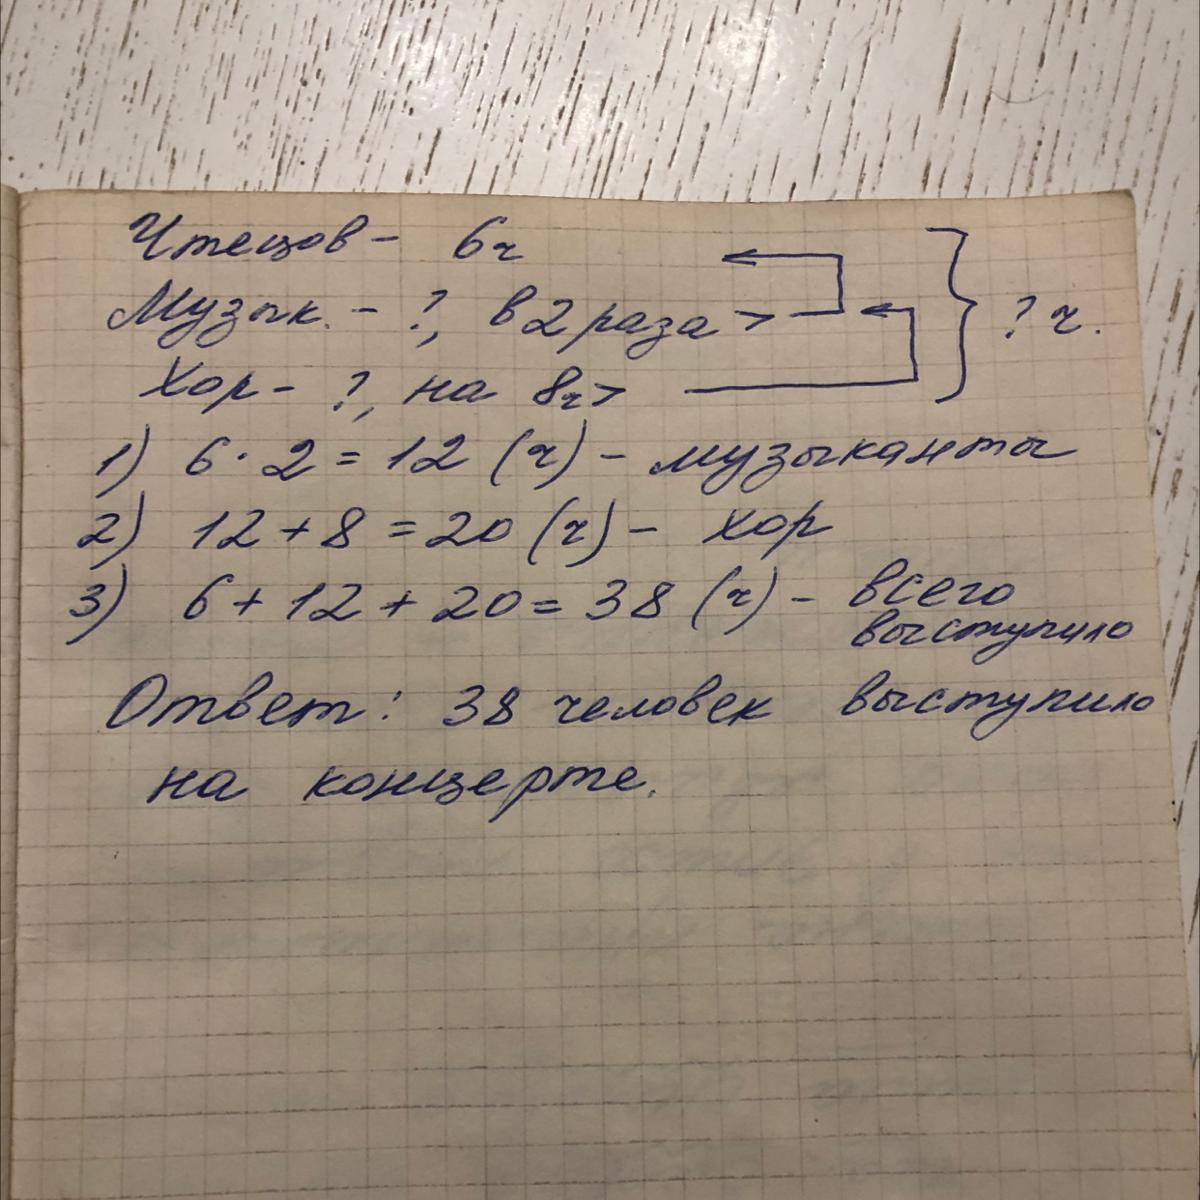 Чтецов – 6ч
Музык. – ?, в 2 раза >
Хор – ?, на 8ч >
? ч.
1) 6 · 2 = 12 (ч) – музыканты
2) 12 + 8 = 20 (ч) – хор
3) 6 + 12 + 20 = 38 (ч) – всего
выступило
Ответ: 38 человек выступило
на концерте.